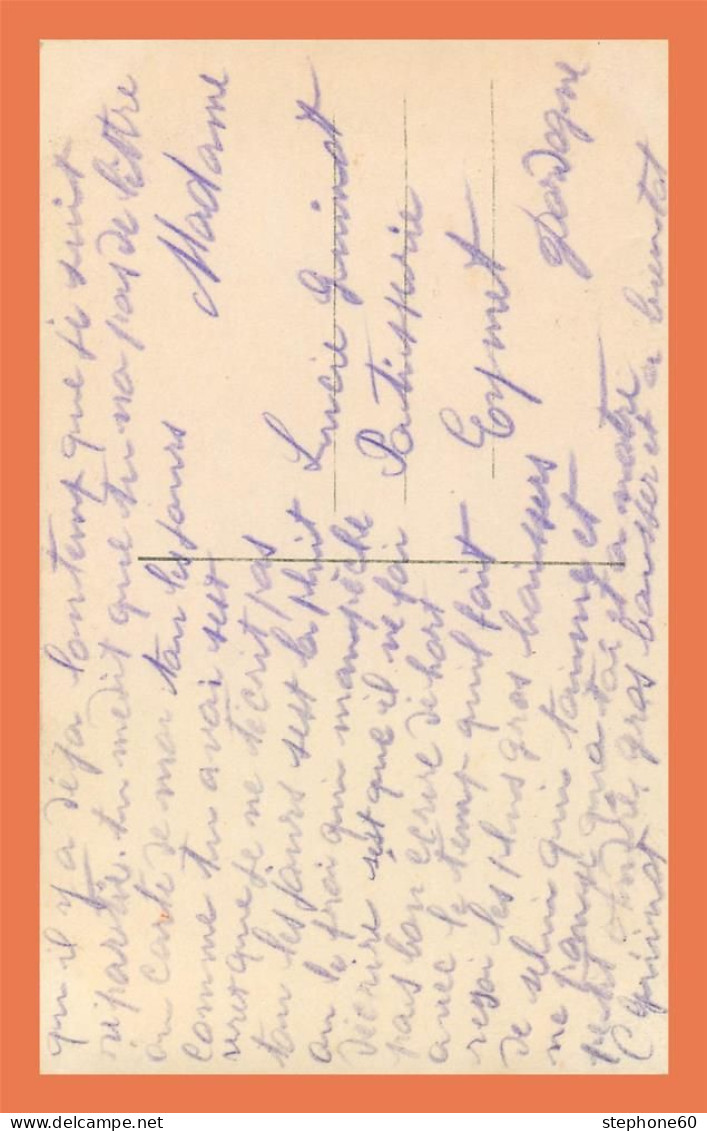 qui il y a déja lontemp que je suit
repartie. tu me dit que tu na pas de lettre
ou carte de moi tou les jours
comme tu avai sest
vrai que je ne técrit pas
tou les jours sest la pluit
ou le froi qui manpèche
décrire sest que il ne fai
pas bon écrire dehort
avec le temp quil fait
resoi les plus gros baissers
de selui qui taime et
ne pense qua toi et a notre
petit André, gros baisser et a bientot
Guinot
Madame
Lucie Guinot
Patisserie
Eymet
Dordogne
stephone60